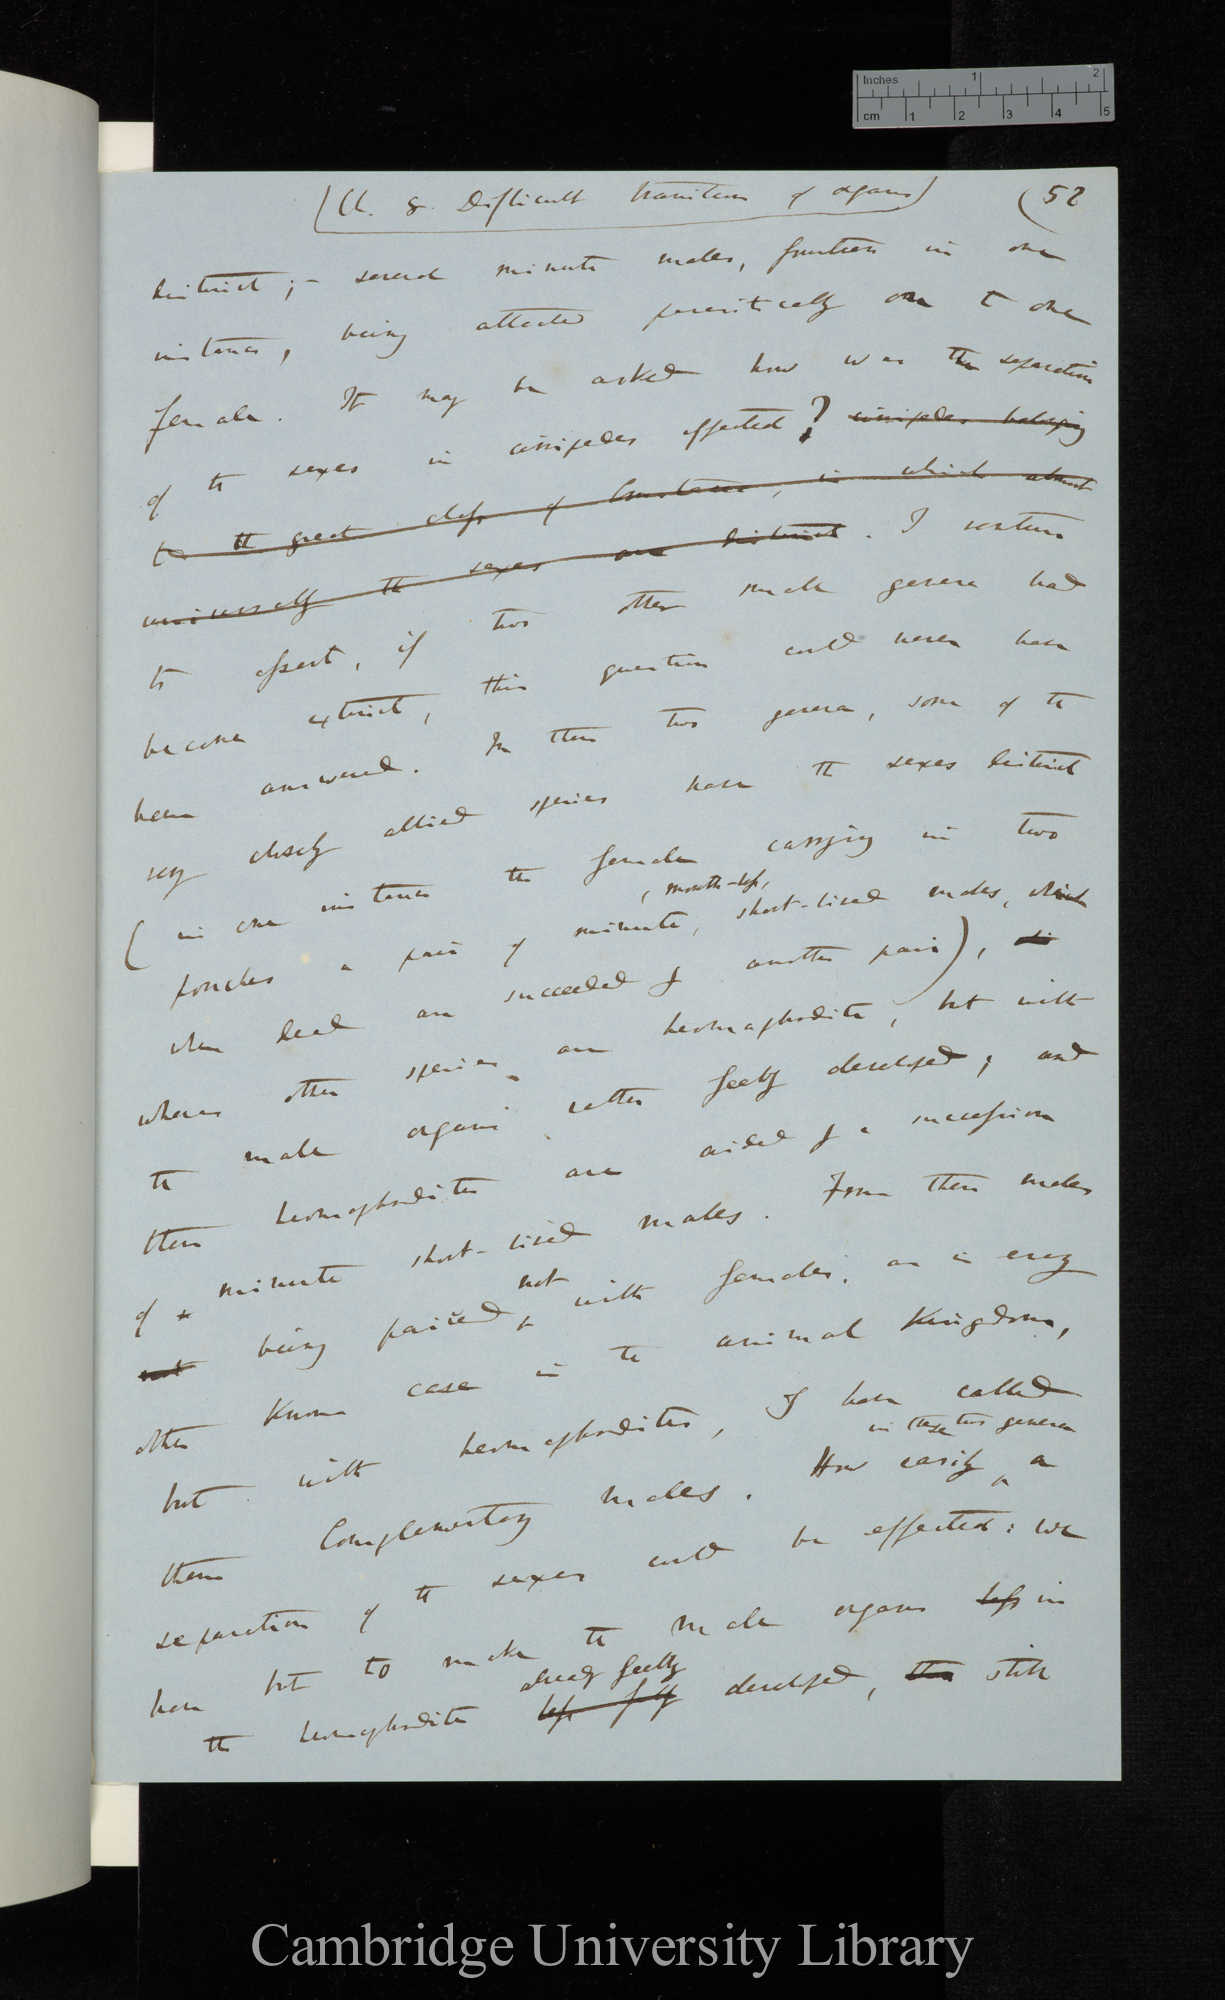 Inches 1 2
cm 1 2 3 4 5
(Ch. 8. Difficult transitions of organs)
(52
distinct;— several minute males, fourteen in one
instance, being attached parasitically on to one
female. It may be asked how was the separation
of the sexes in cirripedes effected? cirripedes belonging
to the great class of Crustacea, in which almost
universally the sexes are distinct. I venture
to assert, if two other such genera had
become extinct, this question could never have
been answered. In these two genera, some of the
very closely allied species have the sexes distinct
(in one instance the female carrying in two
, mouth-less,
pouches a pair of minute, short-lived males, which
when dead are succeeded by another pair),
whereas other species are hermaphrodite, but with
the male organs rather feebly developed; and
these hermaphrodites are aided by a succession
of minute short-lived males. From these males
not
not being paired with females, as in every
other known case in the animal Kingdom,
but with hermaphrodites, I have called
in these two genera
them Complementary males. How easily a
separation of the sexes could be effected: we
have but to make the male organs less in
already feebly
the hermaphrodite less fully developed, the still
Cambridge University Library